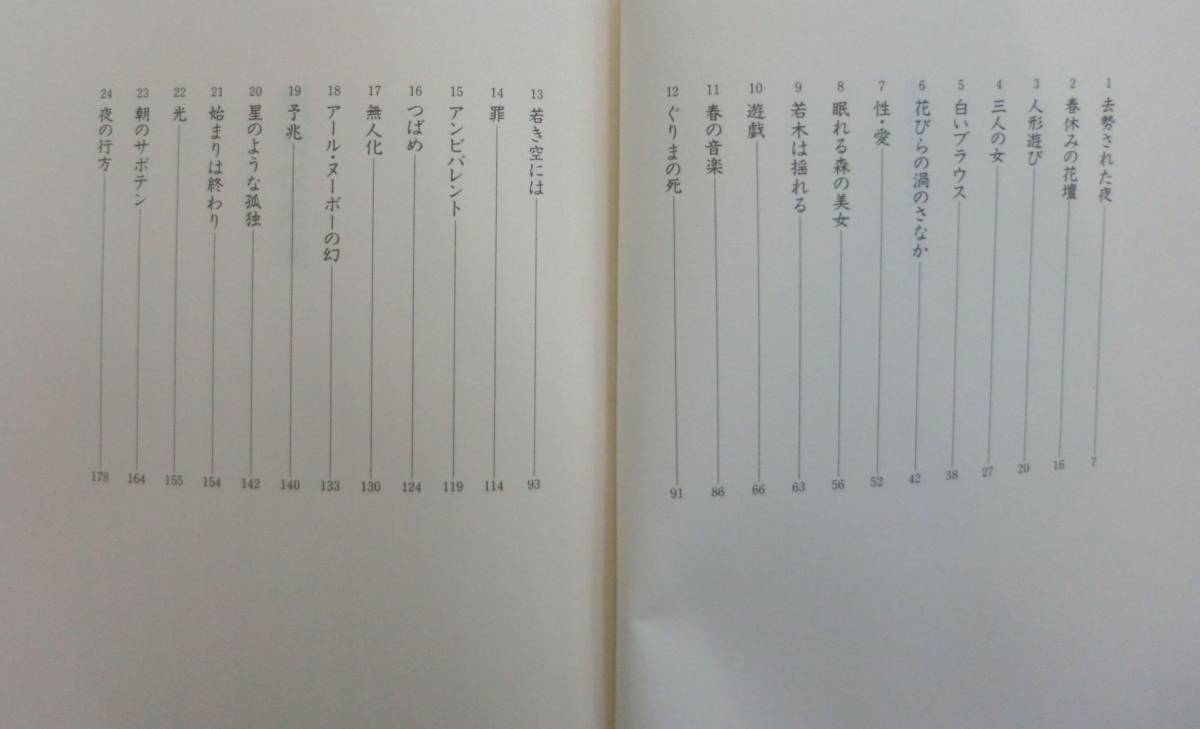 1 去勢された夜 7
2 春休みの花壇 16
3 人形遊び 20
4 三人の女 27
5 白いブラウス 38
6 花びらの渦のさなか 42
7 性・愛 52
8 眠れる森の美女 56
9 若木は揺れる 63
10 遊戯 66
11 春の音楽 86
12 ぐりまの死 91
13 若き空には 93
14 罪 114
15 アンビバレント 119
16 つばめ 124
17 無人化 130
18 アール・ヌーボーの幻 133
19 予兆 140
20 星のような孤独 142
21 始まりは終わり 154
22 光 155
23 朝のサボテン 164
24 夜の行方 178